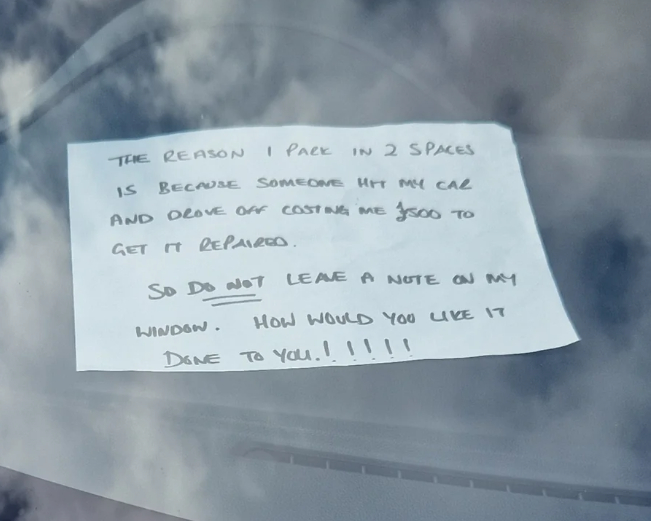 THE REASON I PARK IN 2 SPACES
IS BECAUSE SOMEONE HIT MY CAR
AND DROVE OFF COSTING ME £500 TO
GET IT REPAIRED.
SO DO NOT LEAVE A NOTE ON MY
WINDOW. HOW WOULD YOU LIKE IT
DONE TO YOU.! ! ! ! ! !